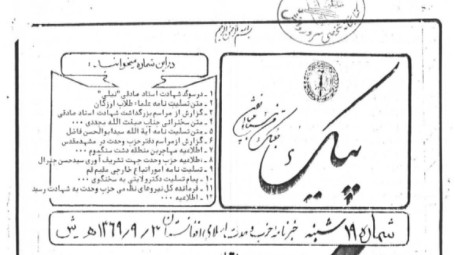 در این شماره میخوانید:
۱ - در سوگ شهادت استاد صادقی "نیلی"
۲ - متن تسلیت نامه علماء طلاب ارزگان
۳ - گزارش از مراسم بزرگداشت شهادت استاد صادقی
۴ - متن سخنرانی جناب صبغت الله مجددی ۰۰۰
۵ - متن تسلیت نامه آیة الله سیدابوالحسن فاضل
۶ - گزارش ازمراسم دفتر حزب وحدت در مشهدمقدس
۷ - اطلاعیه مهاجرین منطقه دشت
۸ - اطلاعیه حزب وحدت جهت تشریف آوری سیدحسن جنرال
۹ - تسلیت نامه امور اتباع خارجی مقیم قم
۱۰ - پیام تسلیت دکترولایتی به سخنگوی ۰۰۰
۱۱ - فرمانده کل نیروهای نظامی حزب وحدت به شهادت رسید
۱۲ - اطلاعیه ۰۰۰
پیک
شماره ۱۹ شنبه خبرنامه حزب وحدت اسلامی افغانستان ۱۳۶۹/۹/۳ هـ ش